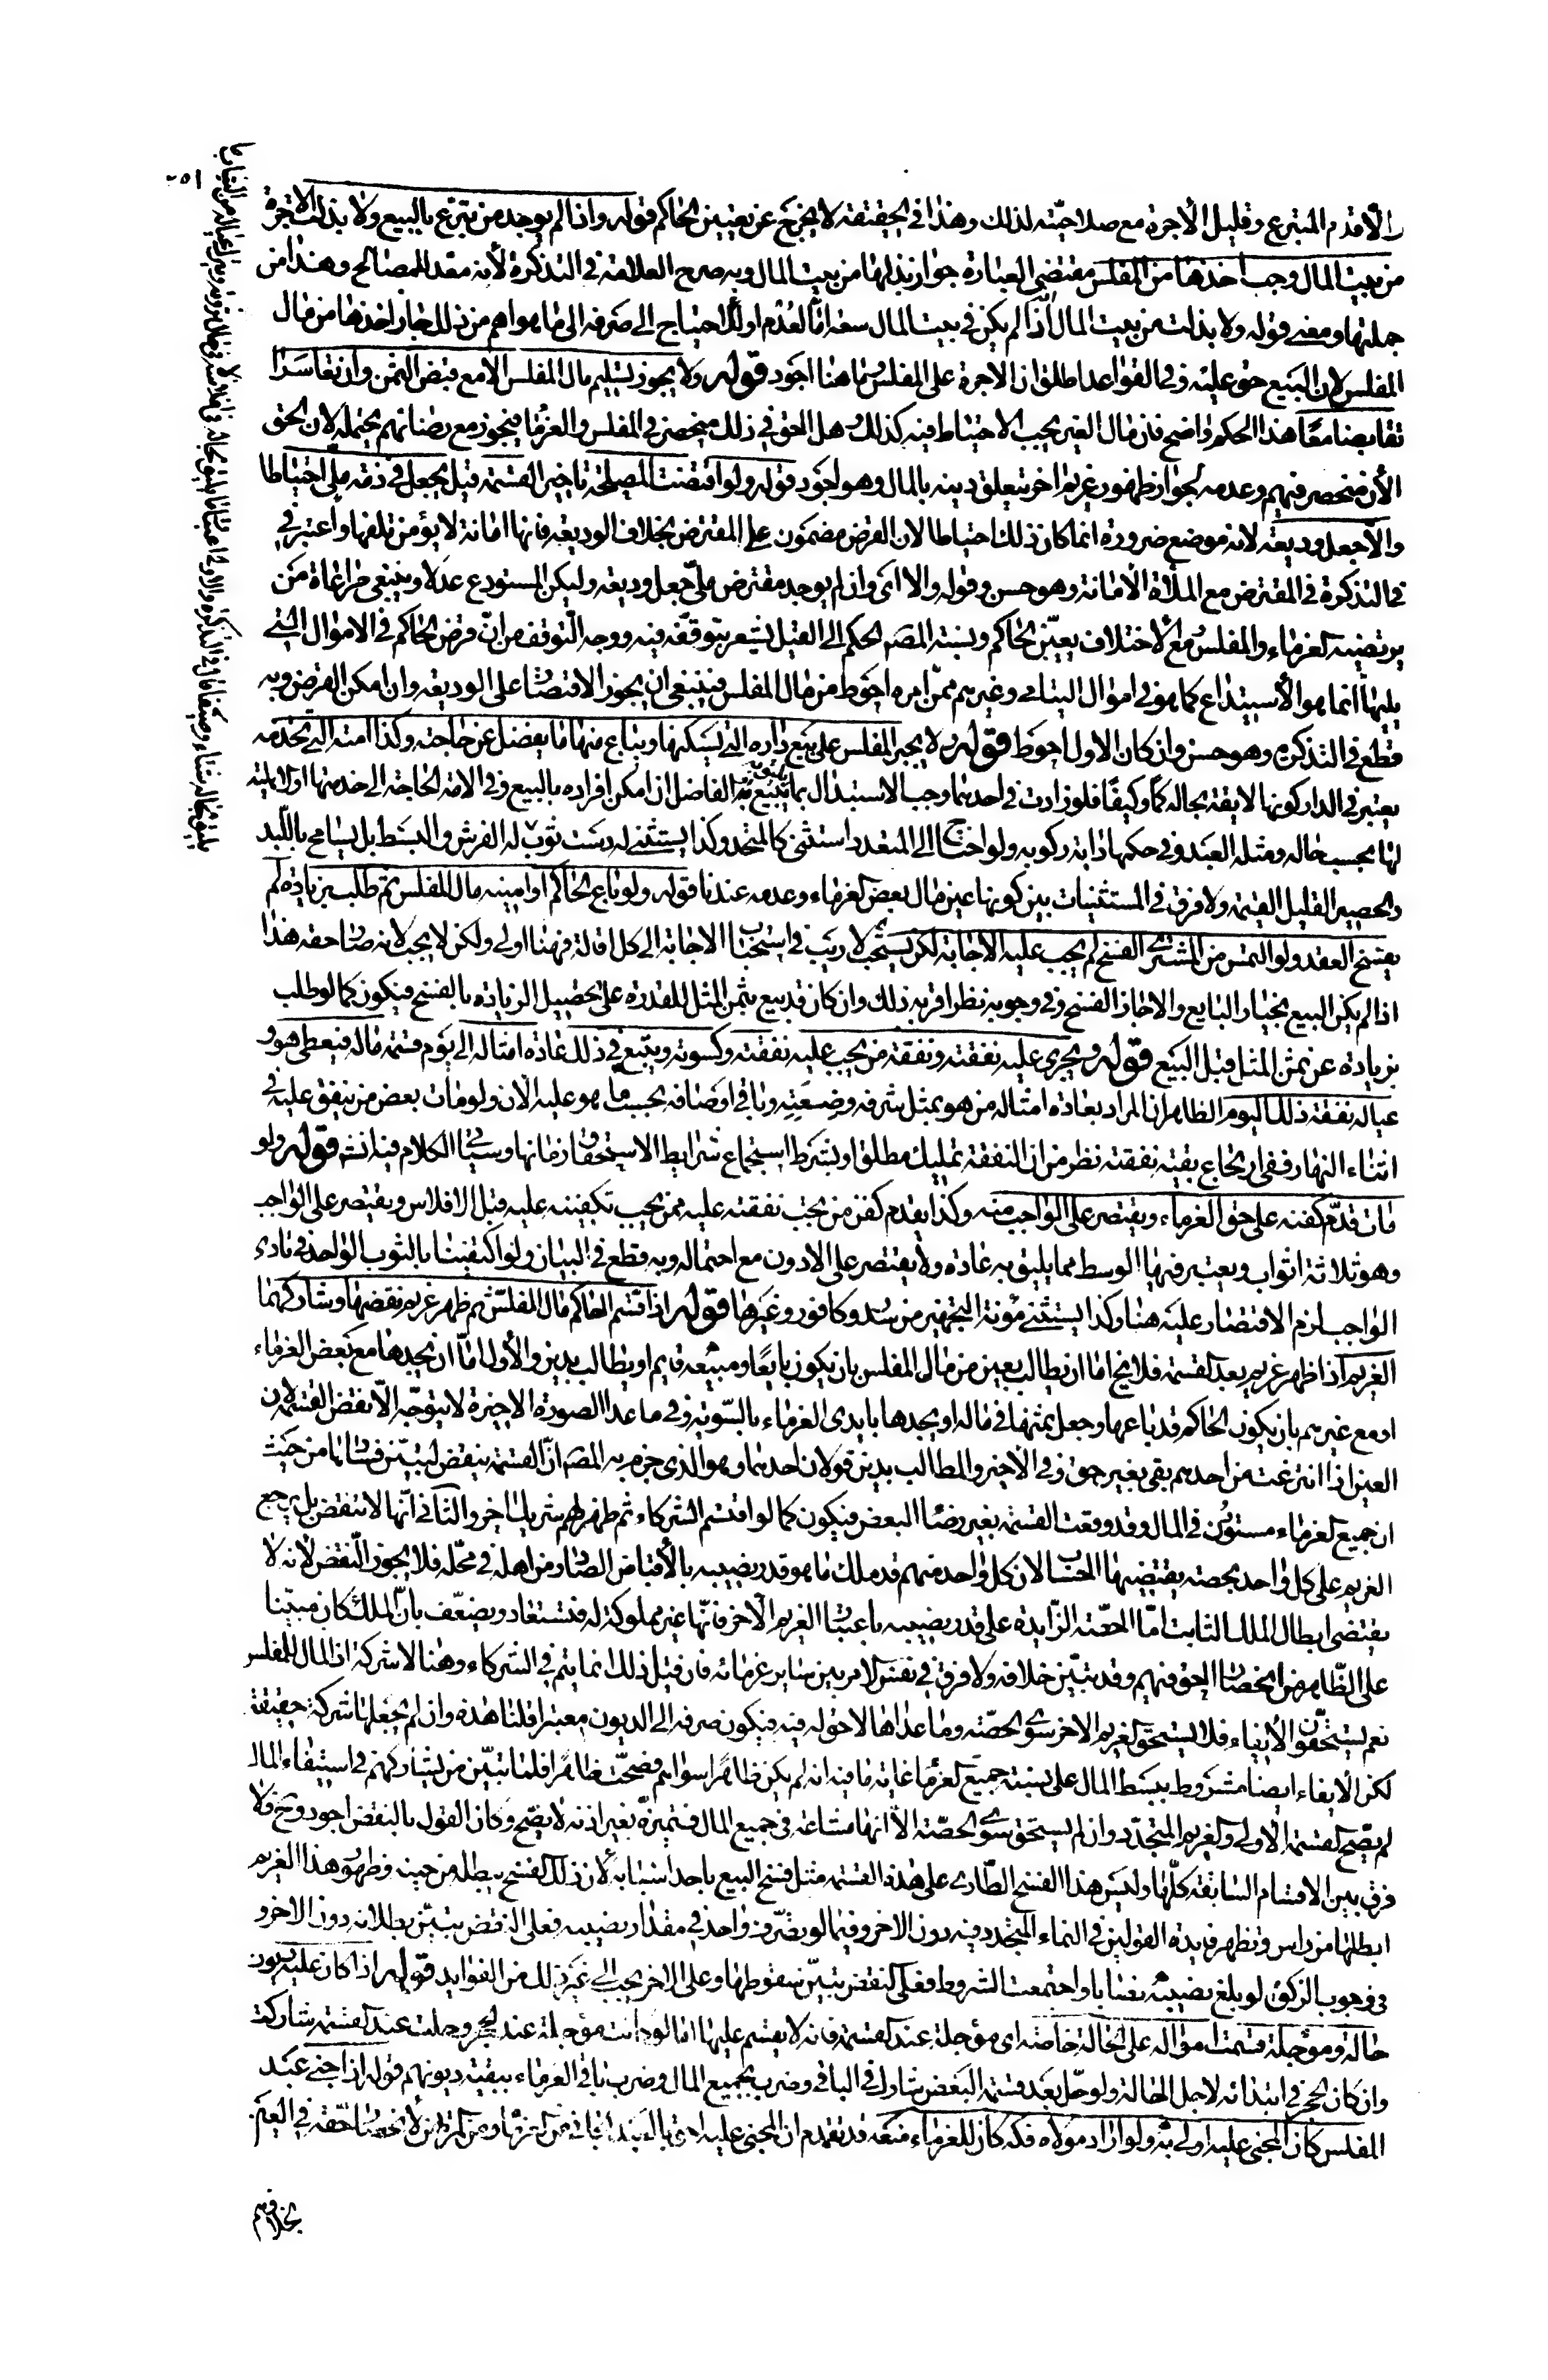 والا قدم المتبرع وقليل الأجرة مع صلاحيته لذلك وهذا في الحقيقة لا يخرج عن تعيين الحاكم قوله واذا لم يوجد من يتبرع بالبيع ولا بذلت الاجرة
من بيت المال وجب اخذها من المفلس مقتضى العبارة جواز بذلها من بيت المال وبه صرح العلامة في التذكرة لأنه معد للمصالح وهذا من
جملتها ومعنى قوله ولا بذلت من بيت المال اذا لم يكن في بيت المال سعة امّا لعدم اولاحتياج الى صرفه الى ما هو اهم من ذلك جاز اخذها من مال
المفلس لان البيع حق عليه وفي القواعد اطلق ان الاجرة على المفلس وما هنا اجود قوله ولا يجوز تسليم مال المفلس الا مع قبض الثمن وان تعاسرا
تقابضا معًا هذا الحكم واضح فان مال الغير يجب الاحتياط فيه كذلك وهل الحق في ذلك منحصر في المفلس والغرما فيجوز مع رضاهم يحتمله لان الحق
الأن منحصر فيهم وعدمه لجواز ظهور غريم اخر تتعلق دينه بالمال وهو اجود قوله ولو اقتضت المصلحة تاخير القسمة قيل يجعل في ذمة ملي احتياطا
والّا جعل وديعة لانه موضع ضرورة انما كان ذلك احتياطا لان القرض مضمون على المقترض بخلاف الوديعة فانها امانة لا يؤمن تلفها واعتبر في
في التذكرة في المقترض مع الملأة الأمانة وهو حسن وقوله والا اى وان لم يوجد مقترض ملي جعل وديعة وليكن المستودع عدلا وينبغي مراعاة من
يرتضيه الغرماء والمفلس ومع الأختلاف يعيّن الحاكم ونسبة المصـ الحكم الى القيل يشعر بتوقفه فيه ووجه التوقف من انّ قرض الحاكم في الاموال التي
يليها انما هو الأستيداع كما هو في اموال اليتامى وغيرهم ممن امره احوط من مال المفلس فينبغي ان يجوز الاقتصار على الوديعة وان امكن القرض وبه
قطع في التذكرة وهو حسن وان كان الاول احوط قوله ولا يجبر المفلس على بيع داره التي يسكنها ويباع منها ما يفضل عن حاجته وكذا امته التي تخدمه
يعتبر في الدار كونها لايقة بحاله كمّا وكيفًا فلو زادت في احدهما وجب الاستبدال بما يليق به او بيع الفاضل ان امكن افراده بالبيع وفي الامة الحاجة الى خدمتها او اهليته
لها بحسب حاله ومثله العبد وفي حكمها دابة ركوبه ولو احتاج الى المتعدد استثنى كالمتحد وكذا يستثنى له دست ثوب له الفرش والبسط بل يسامح باللبد
والحصير القليل القيمة ولا فرق في المستثنيات بين كونها عين مال بعض الغرماء وعدمه عندنا قوله ولو باع الحاكم او امينه مال المفلس ثم طلب بزيادة لم
يفسخ العقد ولو التمس من المشتري الفسخ لم يجب عليه الاجابة لكن يستحب لا ريب في استحباب الاجابة الى كل اقالة فهنا اولى ولكن لا يجب لانه صار حقه هذا
اذا لم يكن البيع بخيار البايع والا جاز الفسخ وفي وجوبه نظر اقربه ذلك وان كان قد بيع بثمن المثل للقدرة على تحصيل الزيادة بالفسخ فيكون كما لو طلب
بزيادة عن ثمن المثل قبل البيع قوله ويجري عليه نفقته ونفقة من يجب عليه نفقته وكسوته ويتبع في ذلك عادة امثاله الى يوم قسمة ماله فيعطى هو و
عياله نفقة ذلك اليوم الظاهر ان المراد بعادة امثاله من هو بمثل شرفه وضعته وباقي اوصافه بحسب ما هو عليه الآن ولو مات بعض من ينفق عليه في
اثناء النهار ففي ارتجاع بقية نفقته نظر من ان النفقة تمليك مطلق او بشرط استجماع شرايط الاستحقاق زمانها وسيأتي الكلام فيه انش قوله ولو
مات قدّم كفنه على حق الغرماء ويقتصر على الواجب منه وكذا يقدم كفن من تجب نفقته عليه ممن يجب تكفينه عليه قبل الافلاس ويقتصر على الواجب
وهو ثلاثة اثواب ويعتبر فيها الوسط مما يليق به عادة ولا يقتصر على الادون مع احتماله وبه قطع في البيان ولو اكتفينا بالثوب الواحد في تادى
الواجب لزم الاقتصار عليه هنا وكذا يستثنى مؤنة التجهيز من سدر وكافور وغيرها قوله اذا قسّم الحاكم مال المفلس ثم ظهر غريم نقضها وشاركهما
الغريم اذا ظهر غريم بعد القسمة فلا يخ اما ان يطالب بعين من مال المفلس بان يكون بايعًا ومبيعه قايم او يطالب بدين والأول اما ان يجدها مع بعض الغرماء
او مع غيرهم بان يكون الحاكم قد باعها وجعل ثمنها في ماله او يجدها بايدى الغرماء بالسّوية وفي ما عدا الصورة الاخيرة لا يتوجّه الّا نقض القسمة لان
العين اذا انتزعت من احدهم بقى بغير حق وفي الأخير والمطالب بدين قولان احدهما وهو الذي جزم به المصـ انّ القسمة ينقض لتبيّن فسادها من حيث
ان جميع الغرماء مستوون في المال وقد وقعت القسمة بغير رضا البعض فيكون كما لو اقتسم الشركاء ثم ظهر لهم شريك اخر والثاني انّها لا تنقض بل يرجع
الغريم على كل واحد بحصة يقتضيها الحساب لان كل واحد منهم قد ملك ما هو قدر نصيبه بالأقباض الصادر من اهله في محلّه فلا يجوز النّقض لأنه لا
يقتضى ابطال الملك الثابت امّا الحصّة الزّايدة على قدر نصيبه باعتبار الغريم الآخر فانّها غير مملوكة له فتستعاد ويضعّف بانّ الملك كان مبنيا
على الظّاهر من انحصار الحق فيهم وقد تبيّن خلافه ولا فرق في نفس الامر بين ساير غرمائه فان قيل ذلك انما يتم في الشركاء وهنا لا شركة اذ المال للمفلس
نعم يستحقّون الأيفاء فلا يستحق الغريم الاخر سوى الحصّة وما عداها لا حق له فيه فيكون صرفه الى الديون معتبرا قلنا هذه وان لم نجعلها شركة حقيقة
لكن الأيفاء ايضا مشروط ببسط المال على نسبة جميع الغرما غاية ما فيه انه لم يكن ظاهرًا سواهم فصحّت ظاهرًا فلما تبيّن من يشاركهم في استيفاء المال
لم يصّح القسمة الاولى والغريم المتجدّد وان لم يستحق سوى الحصّة الّا انها مشاعة في جميع المال فتميزه بغير اذنه لا يصّح وكان القول بالنقض اجود وح فلا
فرق بين الاقسام السابقة كلّها وليس هذا الفسخ الطّارى على هذه القسمة مثل فسخ البيع باحد اسبابه لان ذلك الفسخ يبطله من حينه وظهور هذا الغريم
ابطلها من راس وتظهر فايدة القولين في النماء المتجدد فيه دون الاخر وفيما لو تصّرف واحد في مقدار نصيبه فعلى النقض يتبيّن بطلانه دون الاخر و
في وجوب الزكوة لو بلغ نصيبه نصابا واجتمعت الشروط فعلى النقض يتبيّن سقوطها وعلى الاخر يجب الى غير ذلك من الفوايد قوله اذا كان عليه ديون
حالة ومؤجلة قسمت امواله على الحالة خاصة اى مؤجلة عند القسمة فانه لا يقسم عليها اما لو كانت مؤجلة عند الحجر وحلت عند القسمة شاركت
وان كان الحجر في ابتدائه لاجل الحالة ولو حلّ بعد قسمة البعض شارك في الباقي وضرب بجميع المال وضرب باقي الغرماء ببقية ديونهم قوله اذا جنى عبد
المفلس كان المجني عليه اولى به ولو اراد مولاه فكه كان للغرماء منعه قد تقدم ان المجني عليه احق بالعبد الجاني من الغرماء ومن المرتهن لأنحصار حقه في العين
بخلافهم